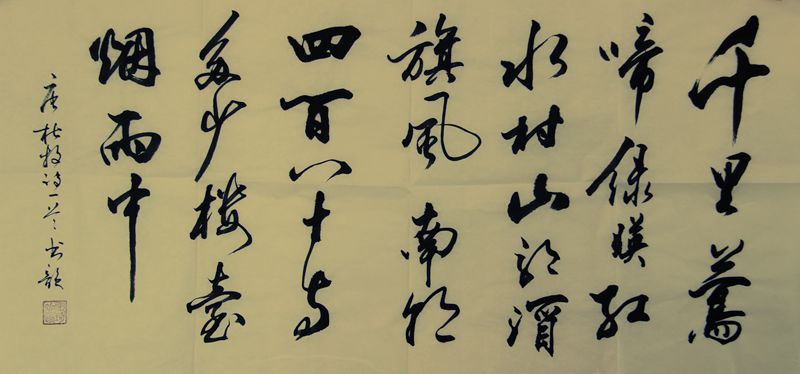 千里莺
啼绿映红
水村山郭酒
旗风南朝
四百八十寺
多少楼台
烟雨中
唐杜牧诗一首